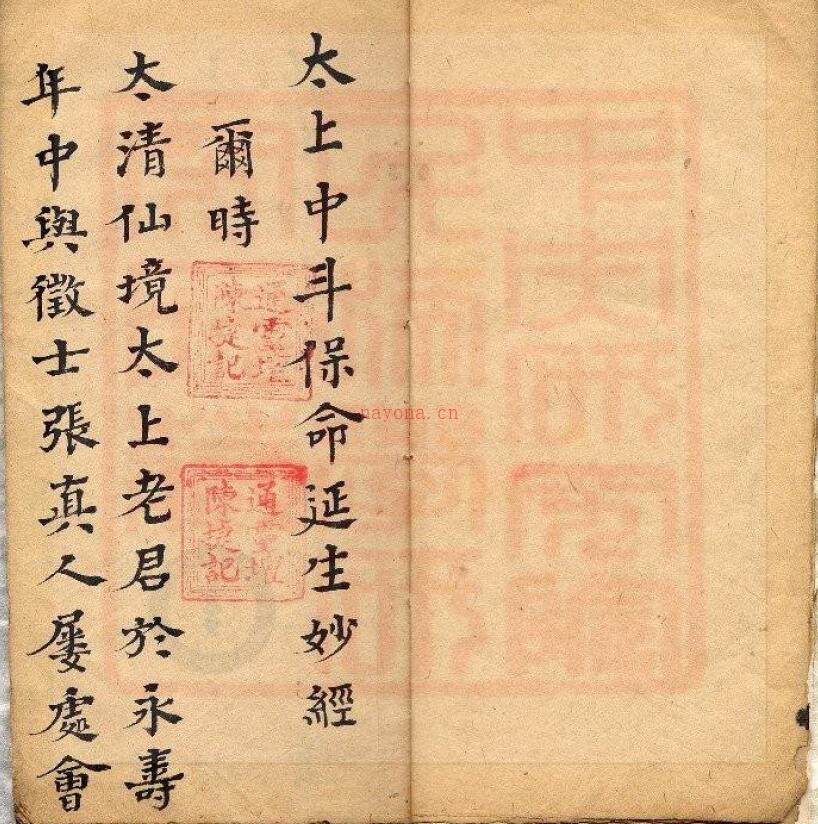 太上中斗保命延生妙經
爾時
太清仙境太上老君於永壽
年中與徵士張真人屡處會
通靈壇
陳捷記
通靈壇
陳捷記
nayona.cn